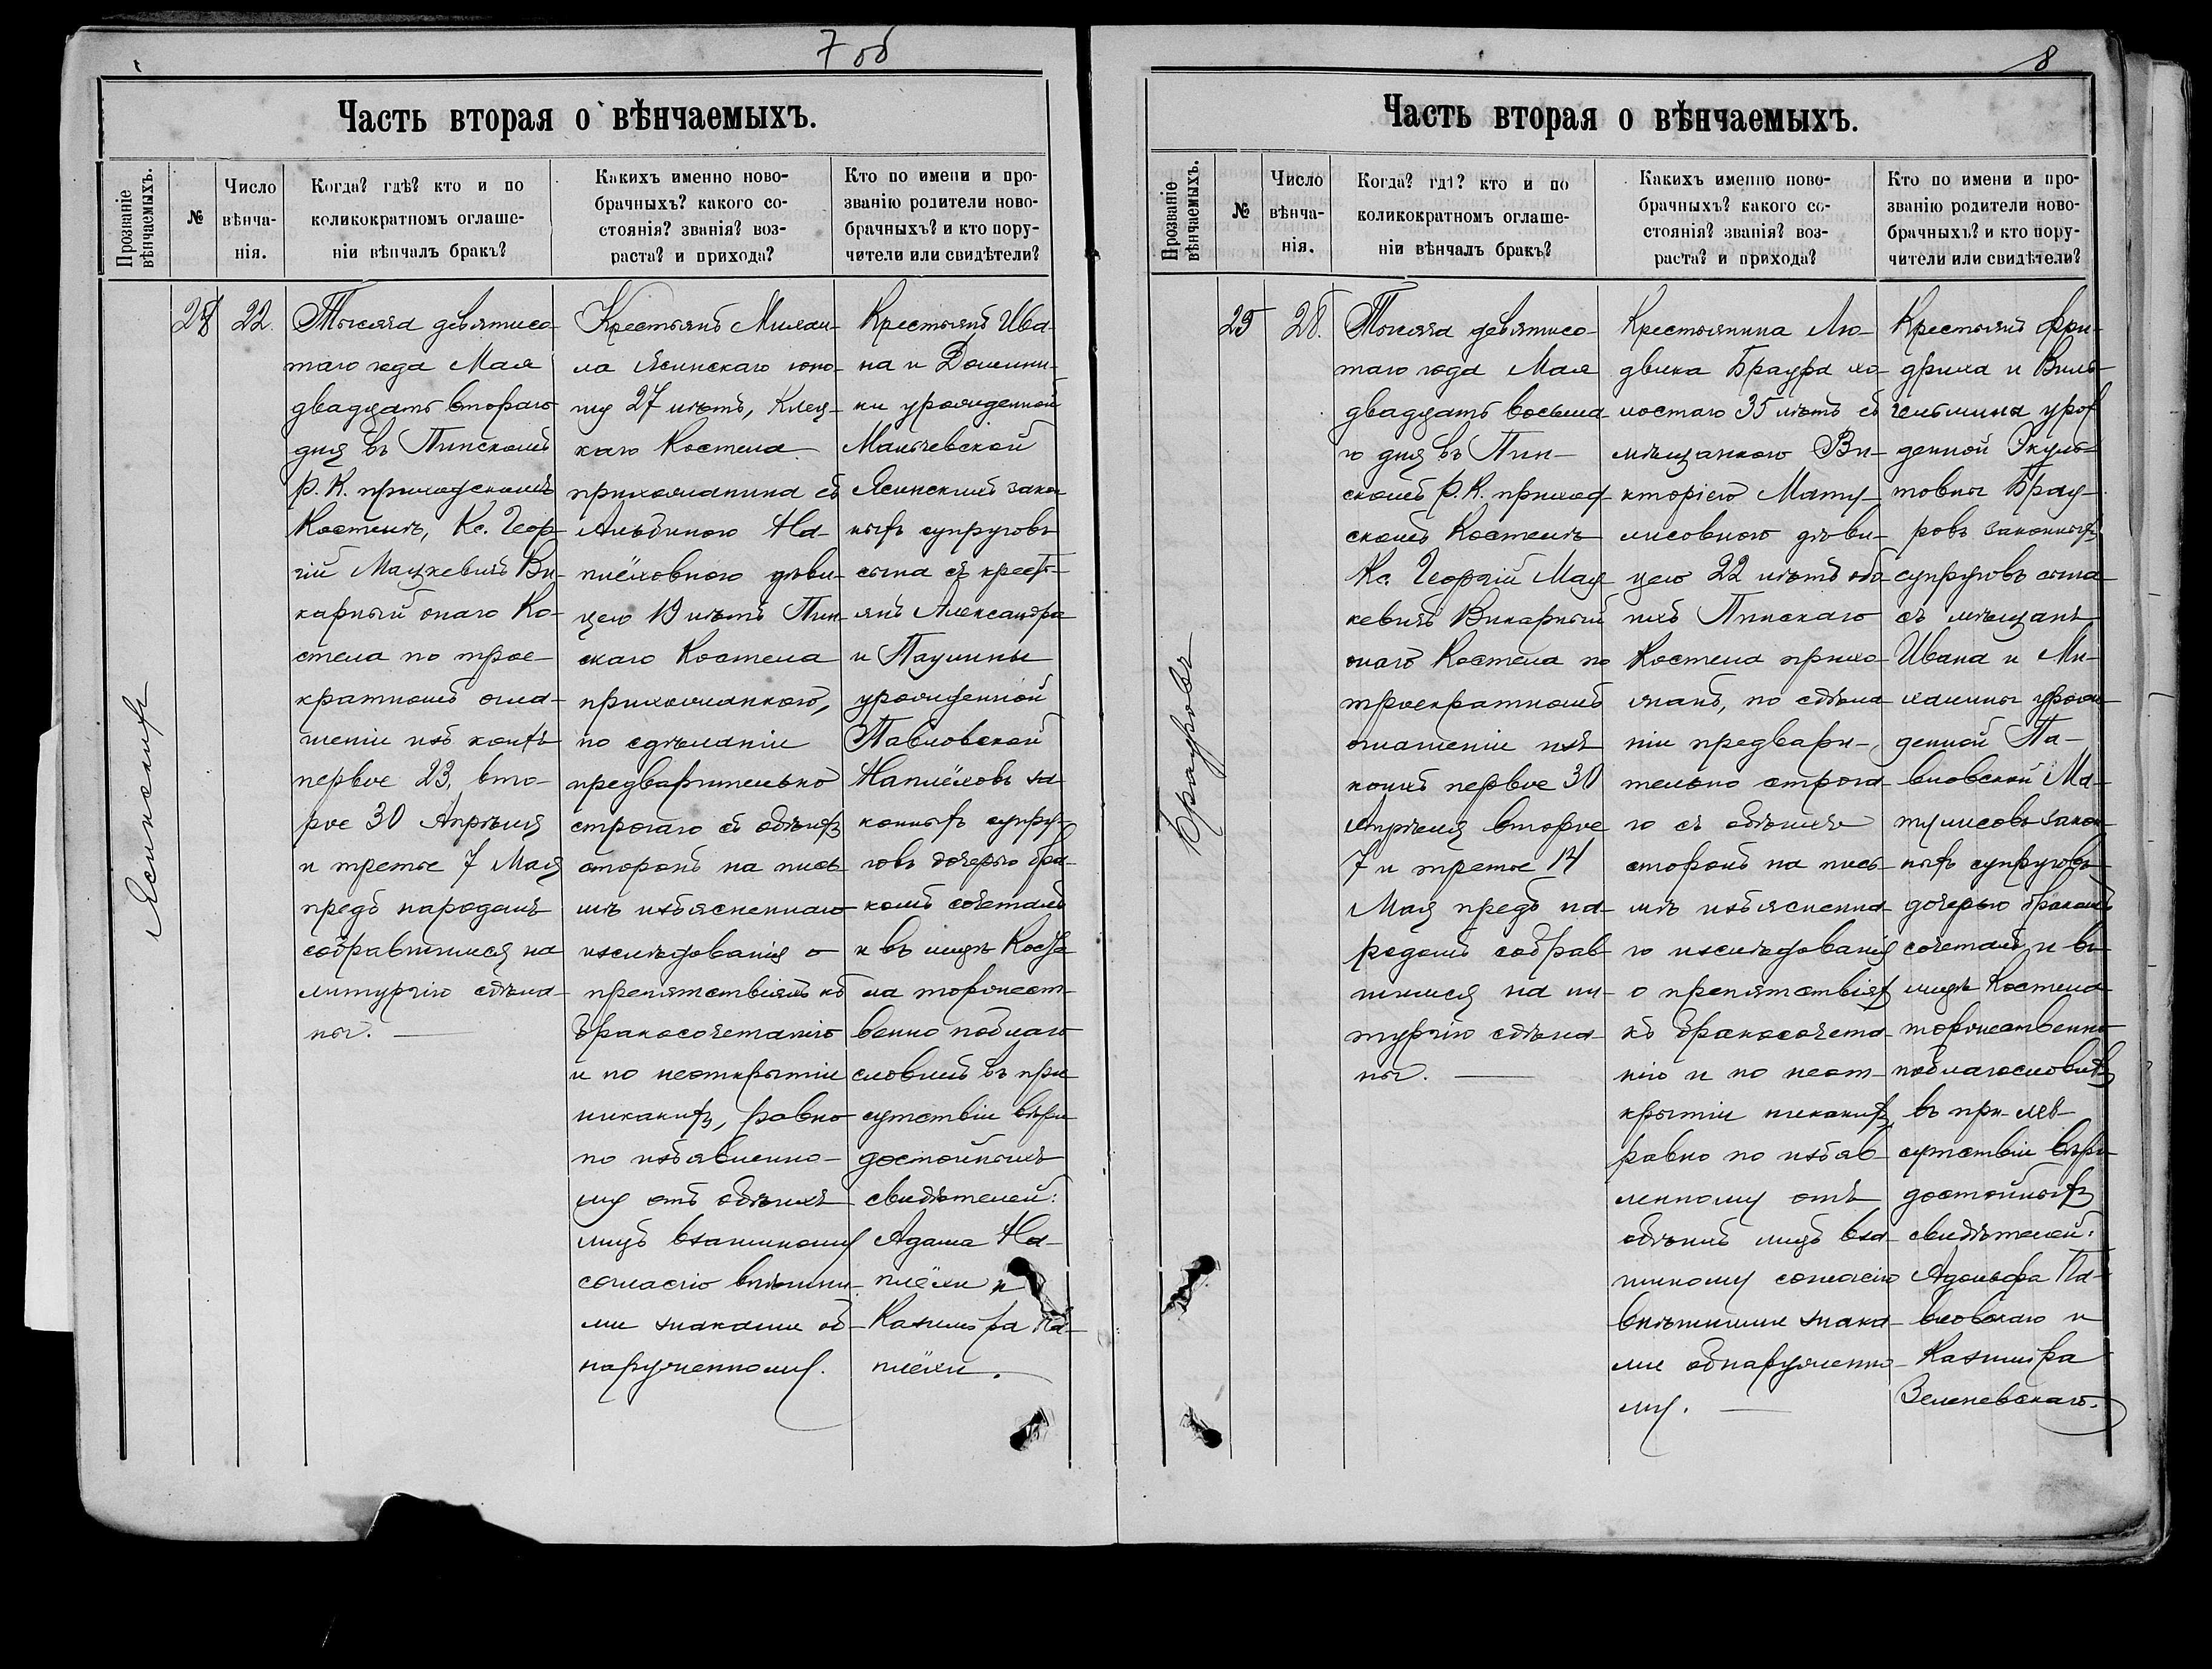 7 об
Часть вторая о вѣнчаемыхъ.
Прозваніе вѣнчаемыхъ.
№
Число вѣнча-
нія.
Когда? гдѣ? кто и по
коликократномъ оглаше-
ніи вѣнчалъ бракъ?
Какихъ именно ново-
брачныхъ? какого со-
стоянія? званія? воз-
раста? и прихода?
Кто по имени и про-
званію родители ново-
брачныхъ? и кто пору-
чители или свидѣтели?
Ясинскихъ
24
22.
Тысяча девятисо-
таго года Мая
двадцать втораго
дня въ Пинскомъ
Р. К. приходскомъ
Костелѣ, Кс. Геор-
гій Мацкевичъ Ви-
карный онаго Ко-
стела по трое-
кратномъ огла-
шеніи изъ коихъ
первое 23, вто-
рое 30 Апрѣля
и третье 7 Мая
предъ народомъ
собравшимся на
литургію сдѣла-
ны.
Крестьянъ Михаи-
ла Ясинскаго юно-
шу 27 лѣтъ, Клец-
каго Костела
прихожанина съ
Альбиною На-
плёховною дѣви-
цею 19 лѣтъ Пин-
скаго Костела
прихожанкою,
по сдѣланіи
предварительно
строгаго съ обѣихъ
сторонъ на пись-
мѣ изъясненнаго
изслѣдованія о
препятствіяхъ къ
бракосочетанію
и по неоткрытіи
никакихъ, равно
по изъявленно-
му отъ обѣихъ
лицъ взаимному
согласію внѣшни-
ми знаками об-
наруженному.
Крестьянъ Ива-
на и Домини-
ки урожденной
Малычевской
Ясинскихъ закон
ныхъ супруговъ
сына съ крест-
янъ Александра
и Паулины
урожденной
Павловской
Наплёховъ за-
конныхъ супру-
говъ дочерью бра-
комъ сочеталъ
и въ лицѣ Косте
ла торжест-
венно поблаго
словилъ въ при
сутствіи вѣро
достойныхъ
свидѣтелей:
Адама На-
плёхи и
Казиміра На-
плёхи.
8
Часть вторая о вѣнчаемыхъ.
Прозваніе вѣнчаемыхъ.
№
Число
вѣнча-
нія.
Когда? гдѣ? кто и по
коликократномъ оглаше-
ніи вѣнчалъ бракъ?
Какихъ именно ново-
брачныхъ? какого со-
стоянія? званія? воз-
раста? и прихода?
Кто по имени и про-
званію родители ново-
брачныхъ? и кто пору-
чители или свидѣтели?
Брауровъ
25
28.
Тысяча девятисо-
таго года Мая
двадцать восьма
го дня въ Пин-
скомъ Р. К. приход
скомъ Костелѣ
Кс. Георгій Мац
кевичъ Викарный
онаго Костела по
троекратномъ
оглашеніи изъ
коихъ первое 30
Апрѣля второе
7 и третье 14
Мая предъ на-
родомъ собрав
шимся на ли-
тургію сдѣла-
ны.
Крестьянина Лю-
двика Браура хо-
лостаго 35 лѣтъ съ
мѣщанкою Ви-
кторіею Мату-
лисовною дѣви-
цею 22 лѣтъ обо
ихъ Пинскаго
Костела прихо-
жанъ, по сдѣла
ніи предвари-
тельно строга
го съ обѣихъ
сторонъ на пись-
мѣ изъясненна-
го изслѣдованія
о препятствіяхъ
къ бракосочета-
нію и по неот-
крытіи никакихъ
равно по изъяв-
ленному отъ
обѣихъ лицъ вза-
имному согласію
внѣшними знака-
ми обнаруженно-
му.
Крестьянъ Фри-
дриха и Виль-
гельмины урож
денной Экуль-
товны Брау-
ровъ законныхъ
супруговъ сына
съ мѣщанъ
Ивана и Ми-
халины урож
денной Па-
вловской Ма-
тулисовъ закон
ныхъ супруговъ
дочерью бракомъ
сочеталъ и въ
лицѣ Костела
торжественно
поблагословилъ
въ при-
сутствіи вѣро-
достойныхъ
свидѣтелей:
Адольфа Па-
вловскаго и
Казиміра
Зеленевскаго.